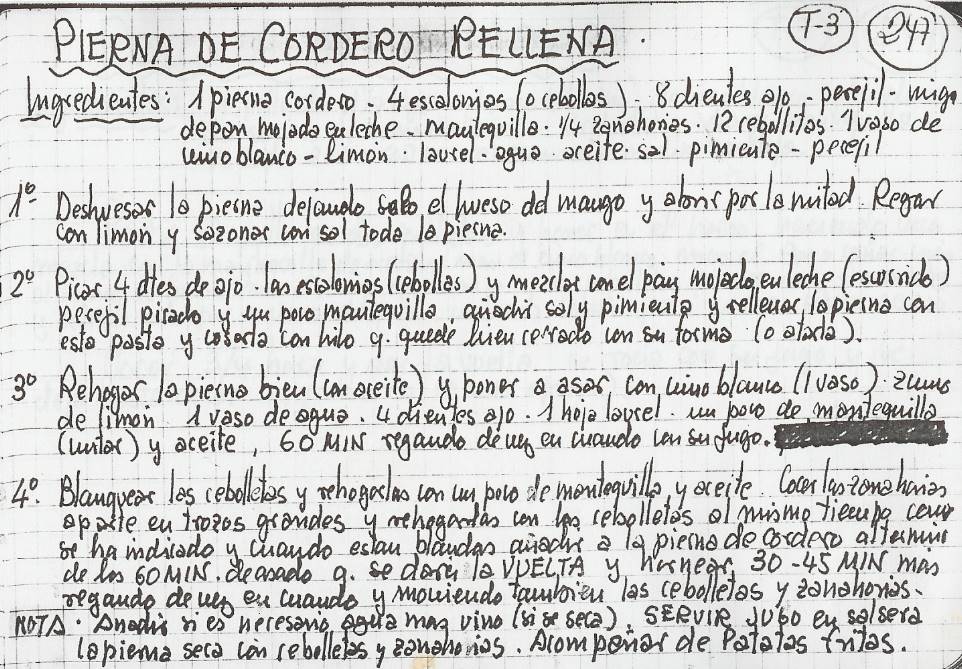 T-3 247
PIERNA DE CORDERO RELLENA.
Ingredientes: 1 pierna cordero - 4 escalonias (o cebollas) - 8 dientes ajo - perejil - miga
de pan mojada en leche - mantequilla · 1/4 zanahorias · 12 cebollitas · 1 vaso de
vino blanco - limón · laurel · agua · aceite · sal · pimienta - perejil
1º- Deshuesar la pierna dejando solo el hueso del mango y abrir por la mitad. Regar
con limon y sazonar con sal toda la pierna.
2º Picar 4 dtes de ajo · las escalonias (cebollas) y mezclar con el pan mojado en leche (escurrido)
perejil picado y un poco mantequilla, añadir sal y pimienta y rellenar la pierna con
esta pasta y coserla con hilo q. quede bien cerrado con su forma (o atarla).
3º Rehogar la pierna bien (con aceite) y poner a asar con vino blanco (1 vaso) · zumo
de limón 1 vaso de agua · 4 dientes ajo · 1 hoja laurel · un poco de mantequilla
(untar) y aceite, 60 MIN regando de vez en cuando con su jugo.
4º. Blanquear las cebolletas y rehogarlas con un poco de mantequilla y aceite. Cocer las zanahorias
aparte en trozos grandes y rehogarlas con las cebolletas al mismo tiempo como
se ha indicado y cuando estan blandas añadir a la pierna de cordero al termino
de los 60 MIN. de asado q. se dará la VUELTA y hornear 30-45 MIN más
regando de vez en cuando y moviendo tambien las cebolletas y zanahorias.
NOTA · Anadir si es necesario agua mas vino (si se seca). SERVIR JUGO en salsera
la pierna seca con cebolletas y zanahorias. Acompañar de Patatas fritas.